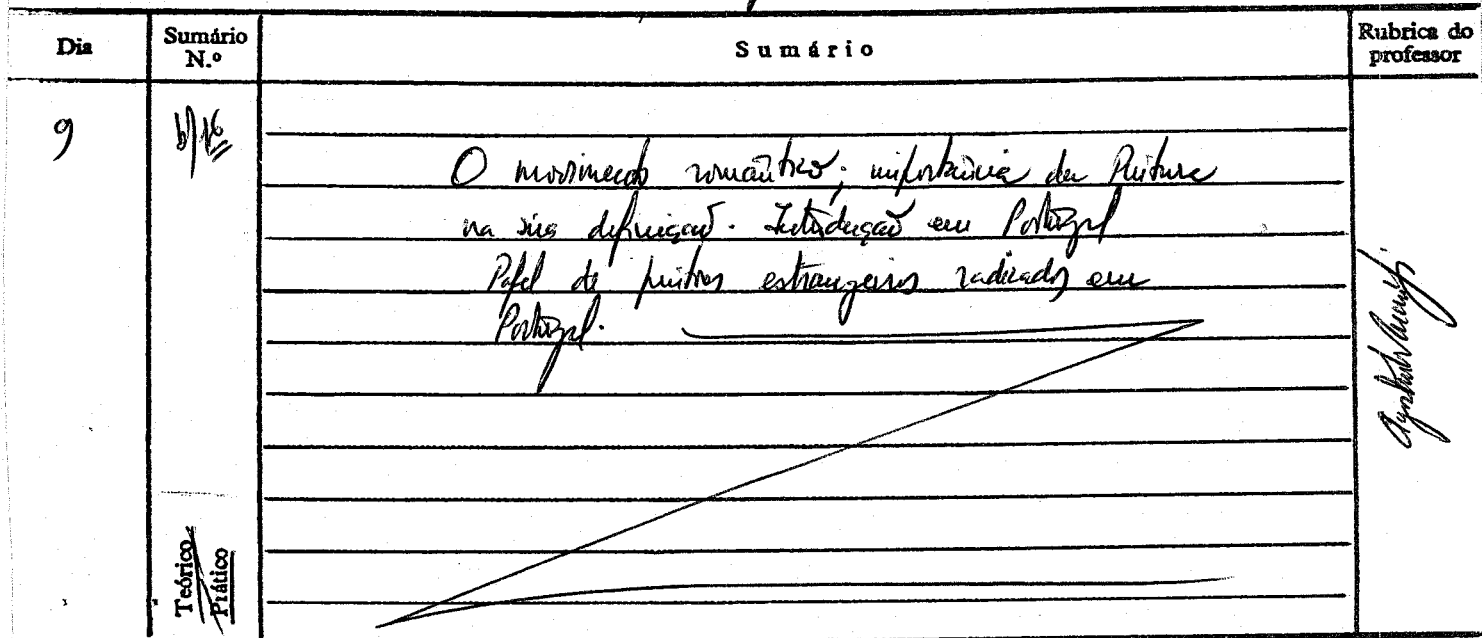 Dia
Sumário
N.º
Sumário
Rubrica do
professor
9
b)16
O movimento romântico; importância da Pintura
na sua definição. Introdução em Portugal
Papel de pintores estrangeiros radicados em
Portugal.
Teórico
Prático